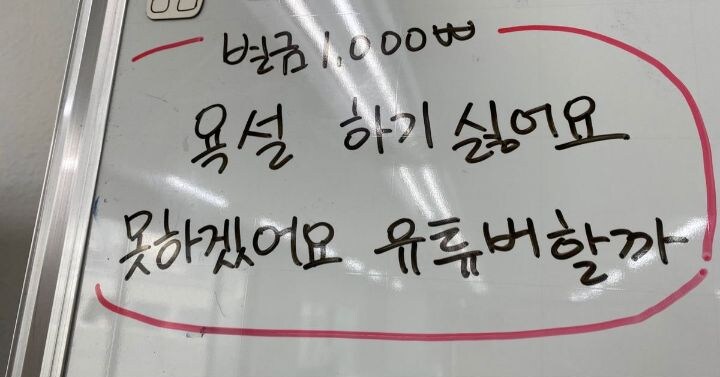 벌금 1,000₩
욕설 하기싫어요
못하겠어요 유튜버할까